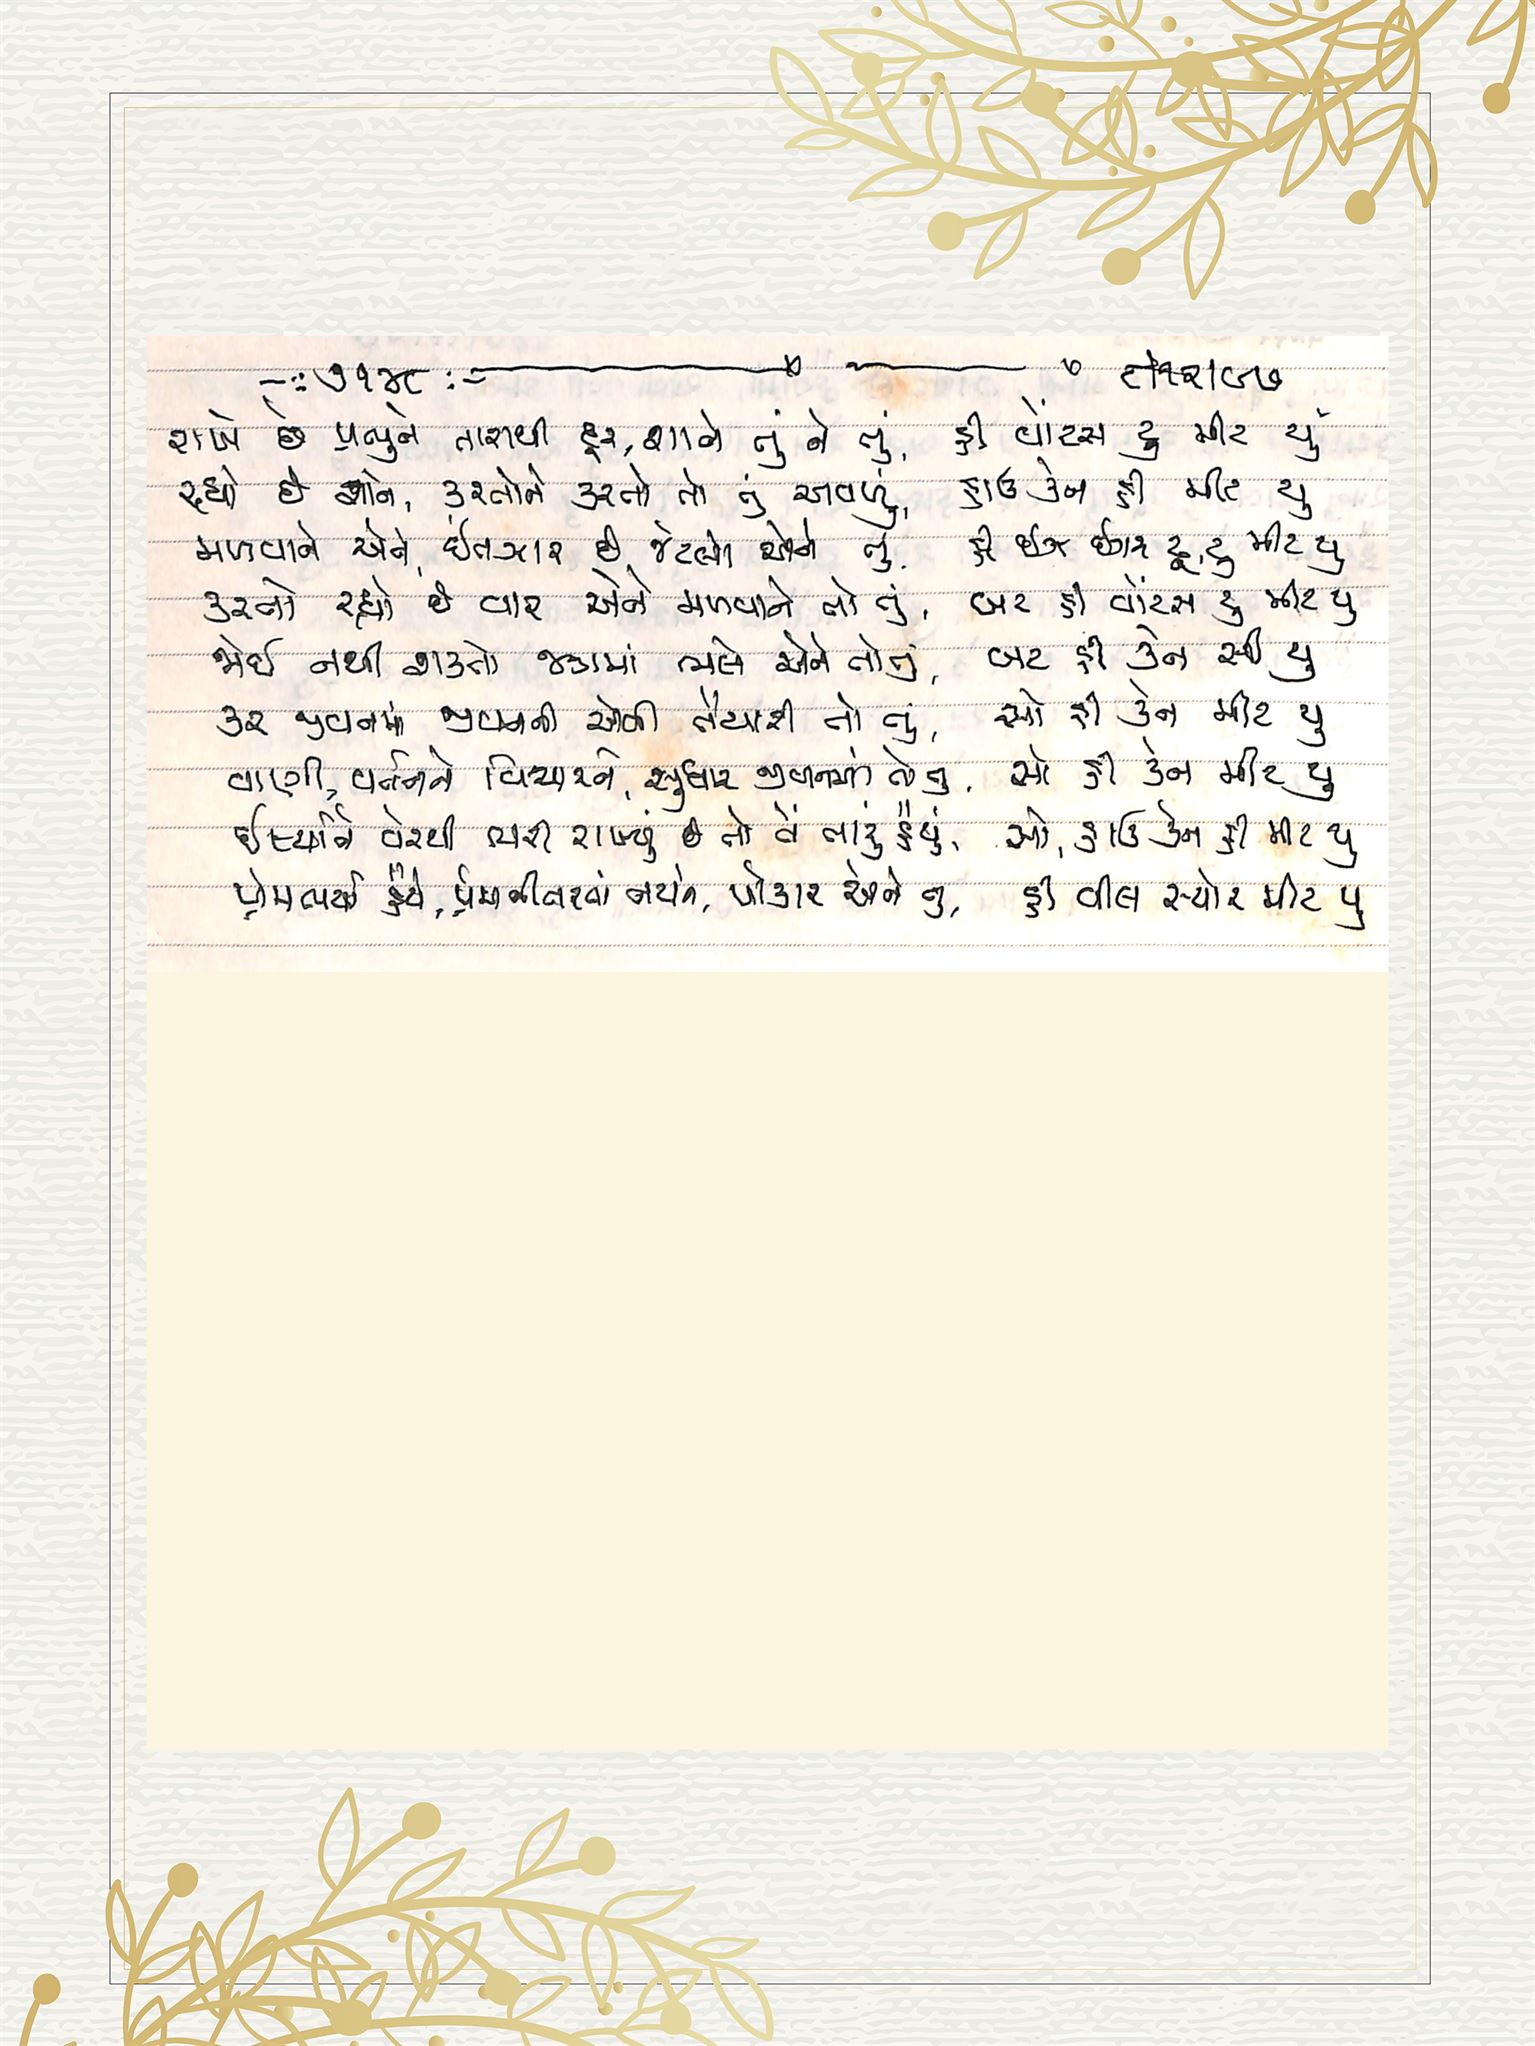 -:: ૭૧૪૮ :=
રાખે છે પ્રભુને તારાથી દૂર, શાને તું ને તું, હી વોંટસ ટુ મીટ યુ
રહ્યો છે શાને, કરતોને કરતો તો તું અવળું, હાઉ કેન હી મીટ યુ
મળવાને એને, ઈંતઝાર છે, જેટલો એને તું. હી ઈઝ ઈગર ટૂ, ટુ મીટ યુ
કરતો રહ્યો છે વાર એને મળવાને તો તું, બટ હી વોંટસ ટુ મીટ યુ
જોઈ નથી શકતો જગમાં ભલે એને તો તું, બટ હી કેન સી યુ
કર જીવનમાં જીવનની એવી તૈયારી તો તું, સો હી કેન મીટ યુ
વાણી, વર્તનને વિચારને, સુધાર જીવનમાં તો તું. સો હી કેન મીટ યુ
ઈર્ષ્યાને વેરથી ભરી રાખ્યું છે તો તેં તારું હૈયું, સો, હાઉ કેન હી મીટ યુ
પ્રેમભર્યા હૈયે, પ્રેમ નીતરતાં નયને, પોકાર એને તું, હી વીલ સ્યોર મીટ યુ